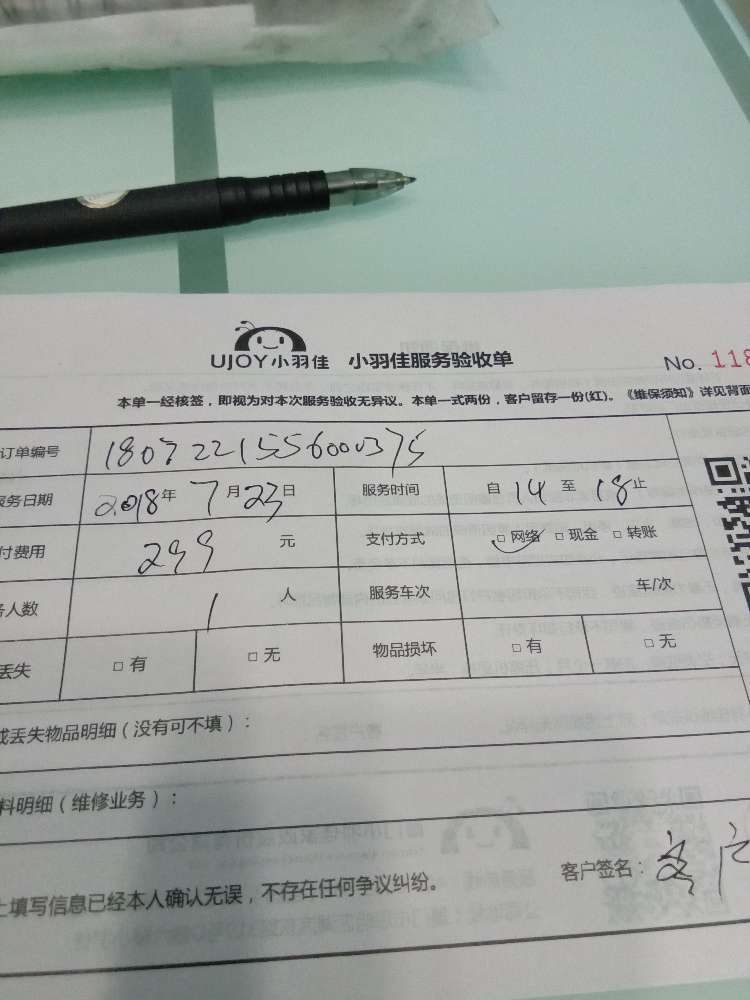 UJOY小羽佳 小羽佳服务验收单 No. 118
本单一经核签，即视为对本次服务验收无异议。本单一式两份，客户留存一份(红)。《维保须知》详见背面
订单编号 180722155600375
服务日期 2018年 7月23日 服务时间 自 14 至 18 止
付费用 299 元 支付方式 □ 网络 □ 现金 □ 转账
务人数 1 人 服务车次 车/次
丢失 □ 有 □ 无 物品损坏 □ 有 □ 无
或丢失物品明细（没有可不填）：
料明细（维修业务）：
上填写信息已经本人确认无误，不存在任何争议纠纷。 客户签名：